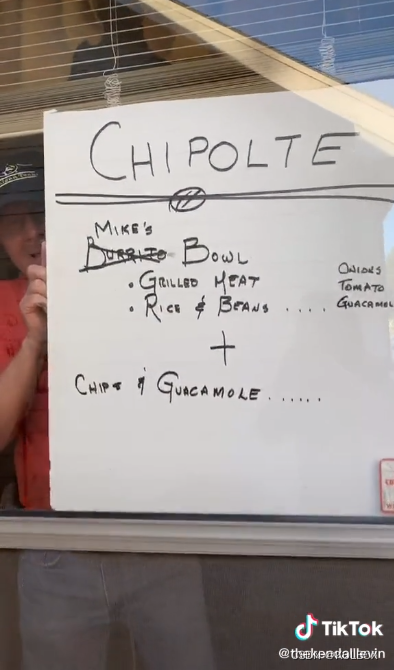 CHIPOLTE
MIKE'S
BURRITO BOWL
• GRILLED MEAT
• RICE & BEANS ....
ONIONS
TOMATO
GUACAMOL
+
CHIPS & GUACAMOLE ......
TikTok
@thekendalllevin